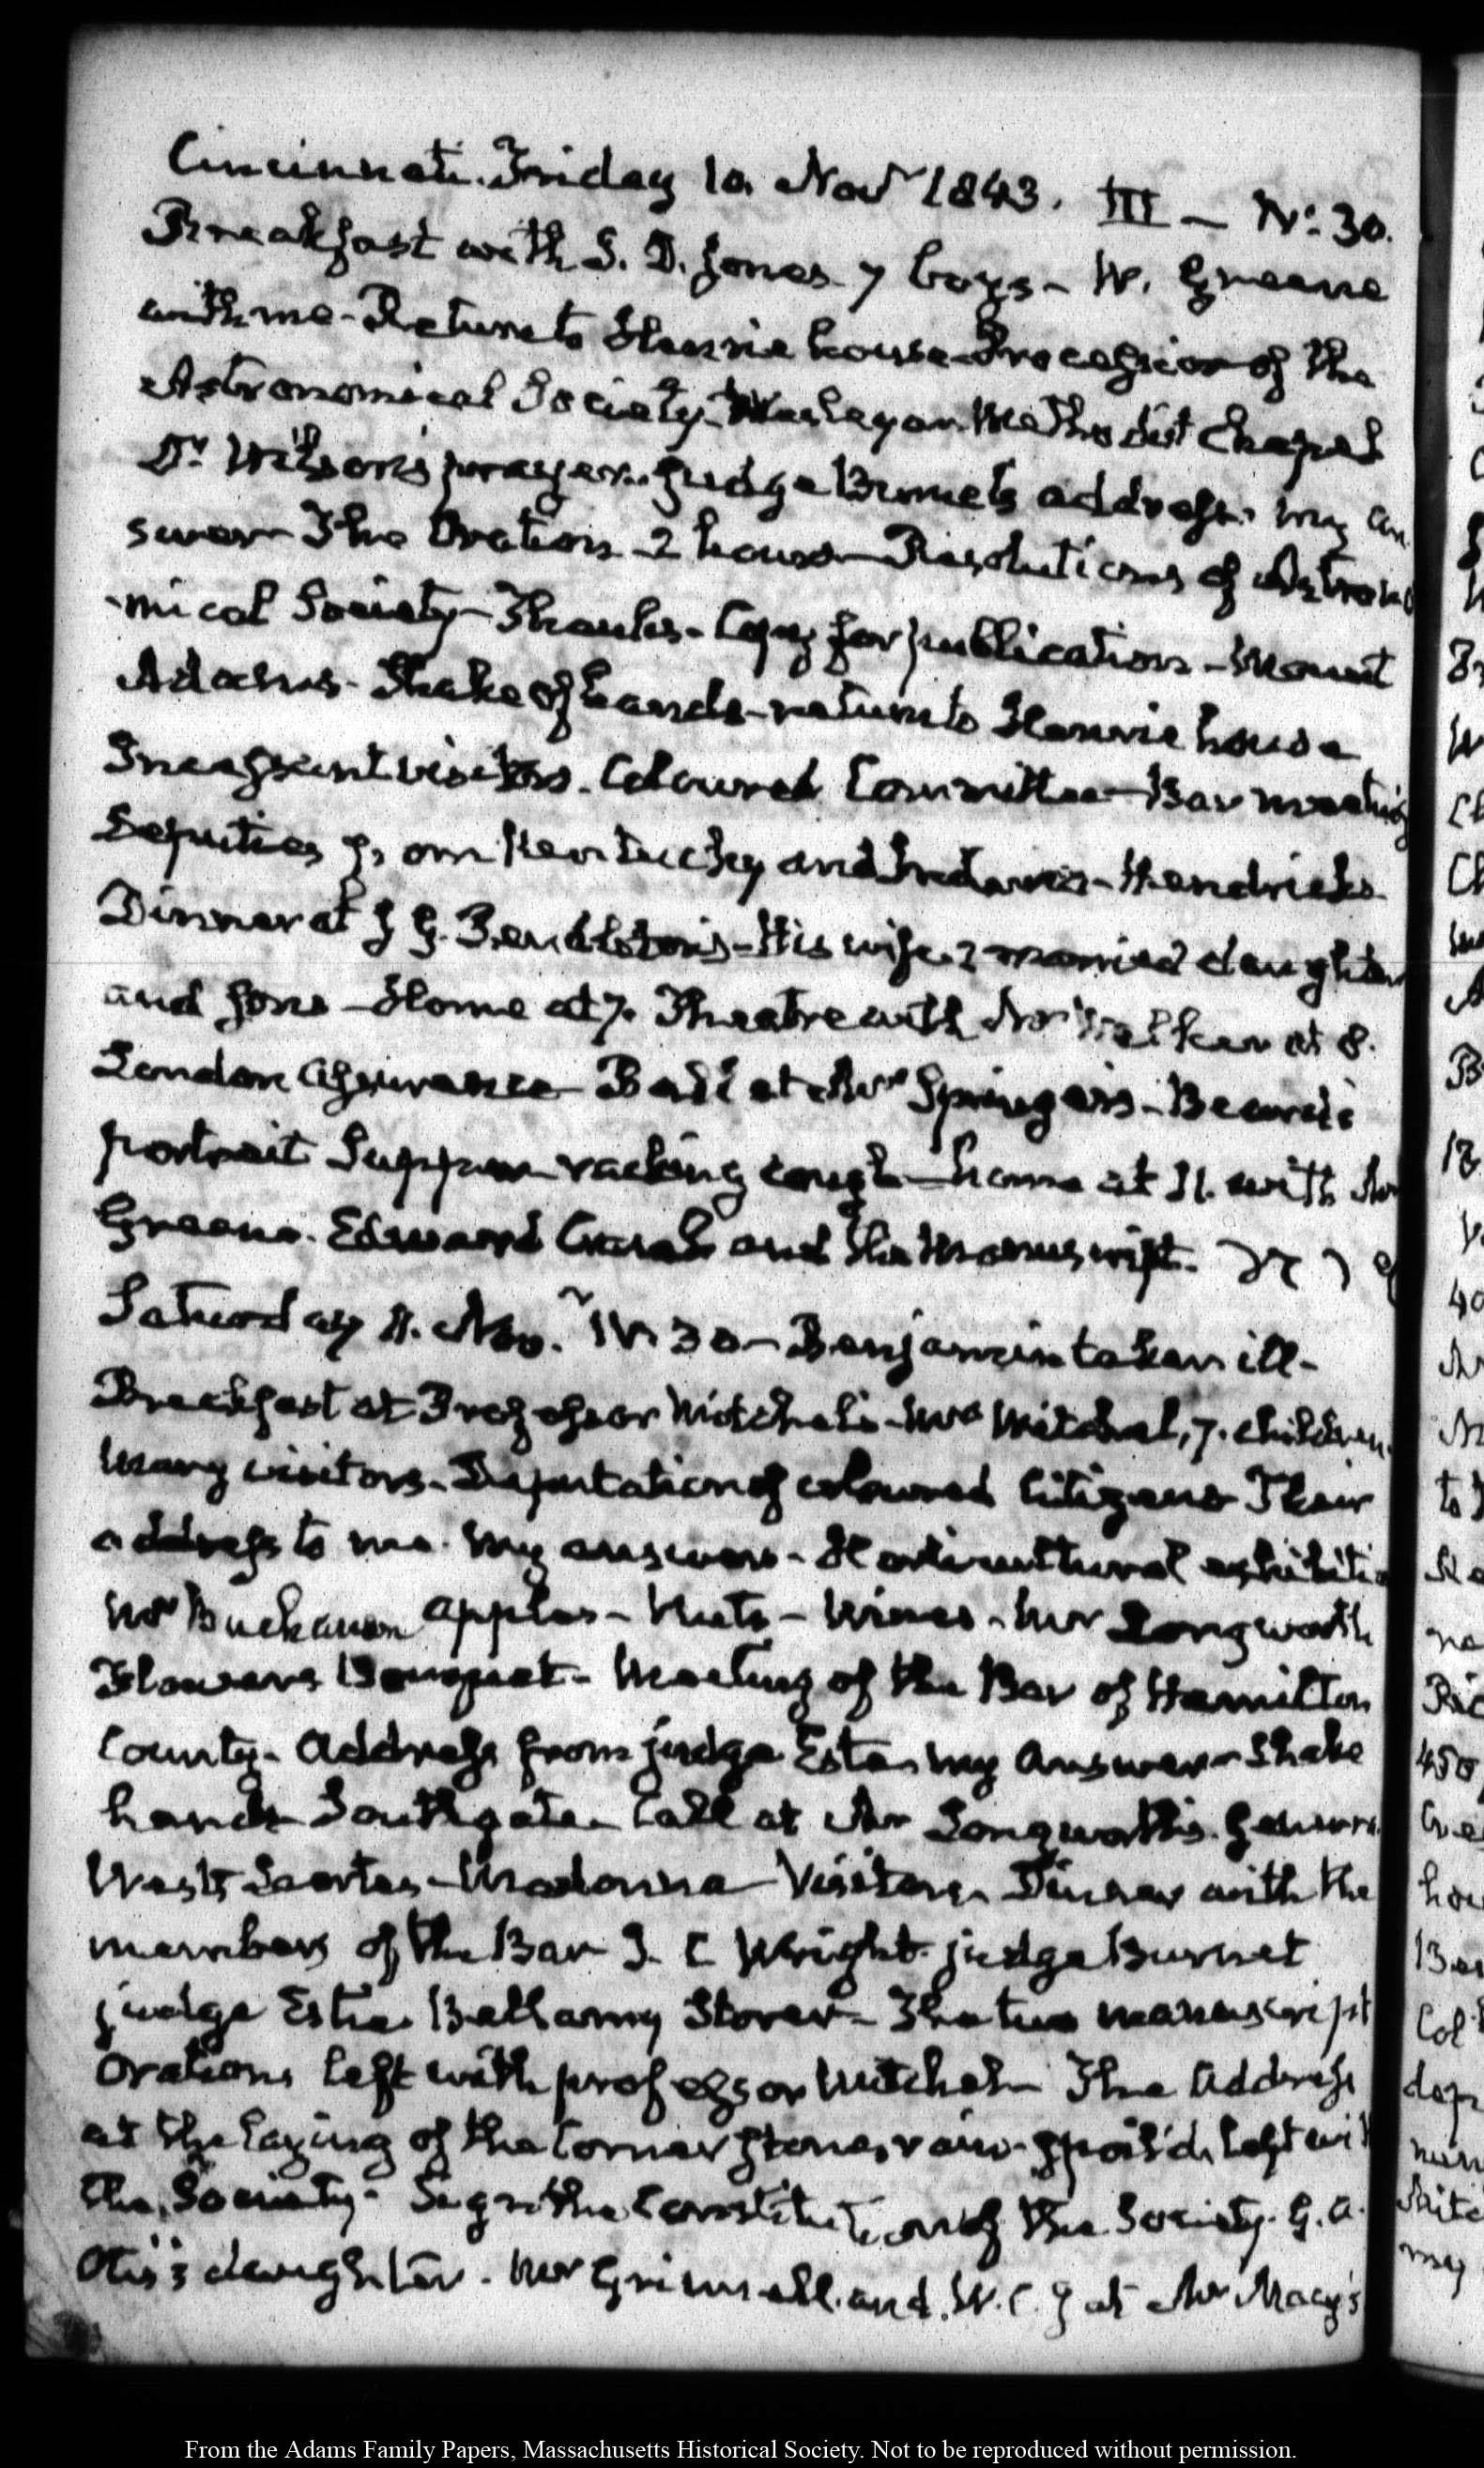 Cincinnati. Friday 10. Novr 1843. III — No. 30.
Breakfast with S. D. Jones 7 boys – W. Greene
with me – Return to Hennie house – Procession of the
Astronomical Society – Wesleyan Methodist Chapel
Dr. Wilson's prayer. Judge Burnet's address. my an
swer – The Oration – 2 hours – Resolutions of Astrono
mical Society – Thanks – Copy for publication – Mount
Adams – Shake of hands – return to Hennie house
Incessant visitors. Coloured Committee – Bar meeting
Deputies from Kentucky and Indiana – Hendricks
Dinner at J G. Pendleton's – His wife 2 married daughters
and sons – Home at 7. Theatre with Mr Walker at 8.
London Assurance – Ball at Mrs Springer's – Beard's
portrait Supper – racking cough – home at 11. with Mr
Greene. Edward and the Manuscript.
Saturday 11. Nov. IV. 30 – Benjamin taken ill –
Breakfast at Professor Mitchel's – Mrs Mitchel, 7. children.
Many visitors. Deputation of coloured Citizens Their
address to me. My answer – Horticultural exhibitio
Mr Buchanan apples – Nuts – Wines – Mr Longworth
Flowers Bouquet – Meeting of the Bar of Hamilton
County – Address from judge Este – my Answer – Shake
hands Southgate. Call at Mr Longworth's.
West's Laertes – Madonna – Visitors. Dinner with the
members of the Bar J. C Wright judge Burnet
judge Este. Bellamy Storer – The two manuscript
Orations left with professor Mitchel – The Address
at the laying of the Corner stone, rain-spoil'd, left wit
the Society. Sign the Constitution of the Society. G. A.
Otis's daughter. Mr Grinnell and W. C. J at Mr Macy's
From the Adams Family Papers, Massachusetts Historical Society. Not to be reproduced without permission.